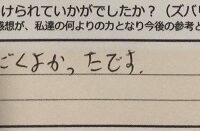 けられていかがでしたか？（ズバリ
感想が、私達の何よりの力となり今後の参考と
ごくよかったです.